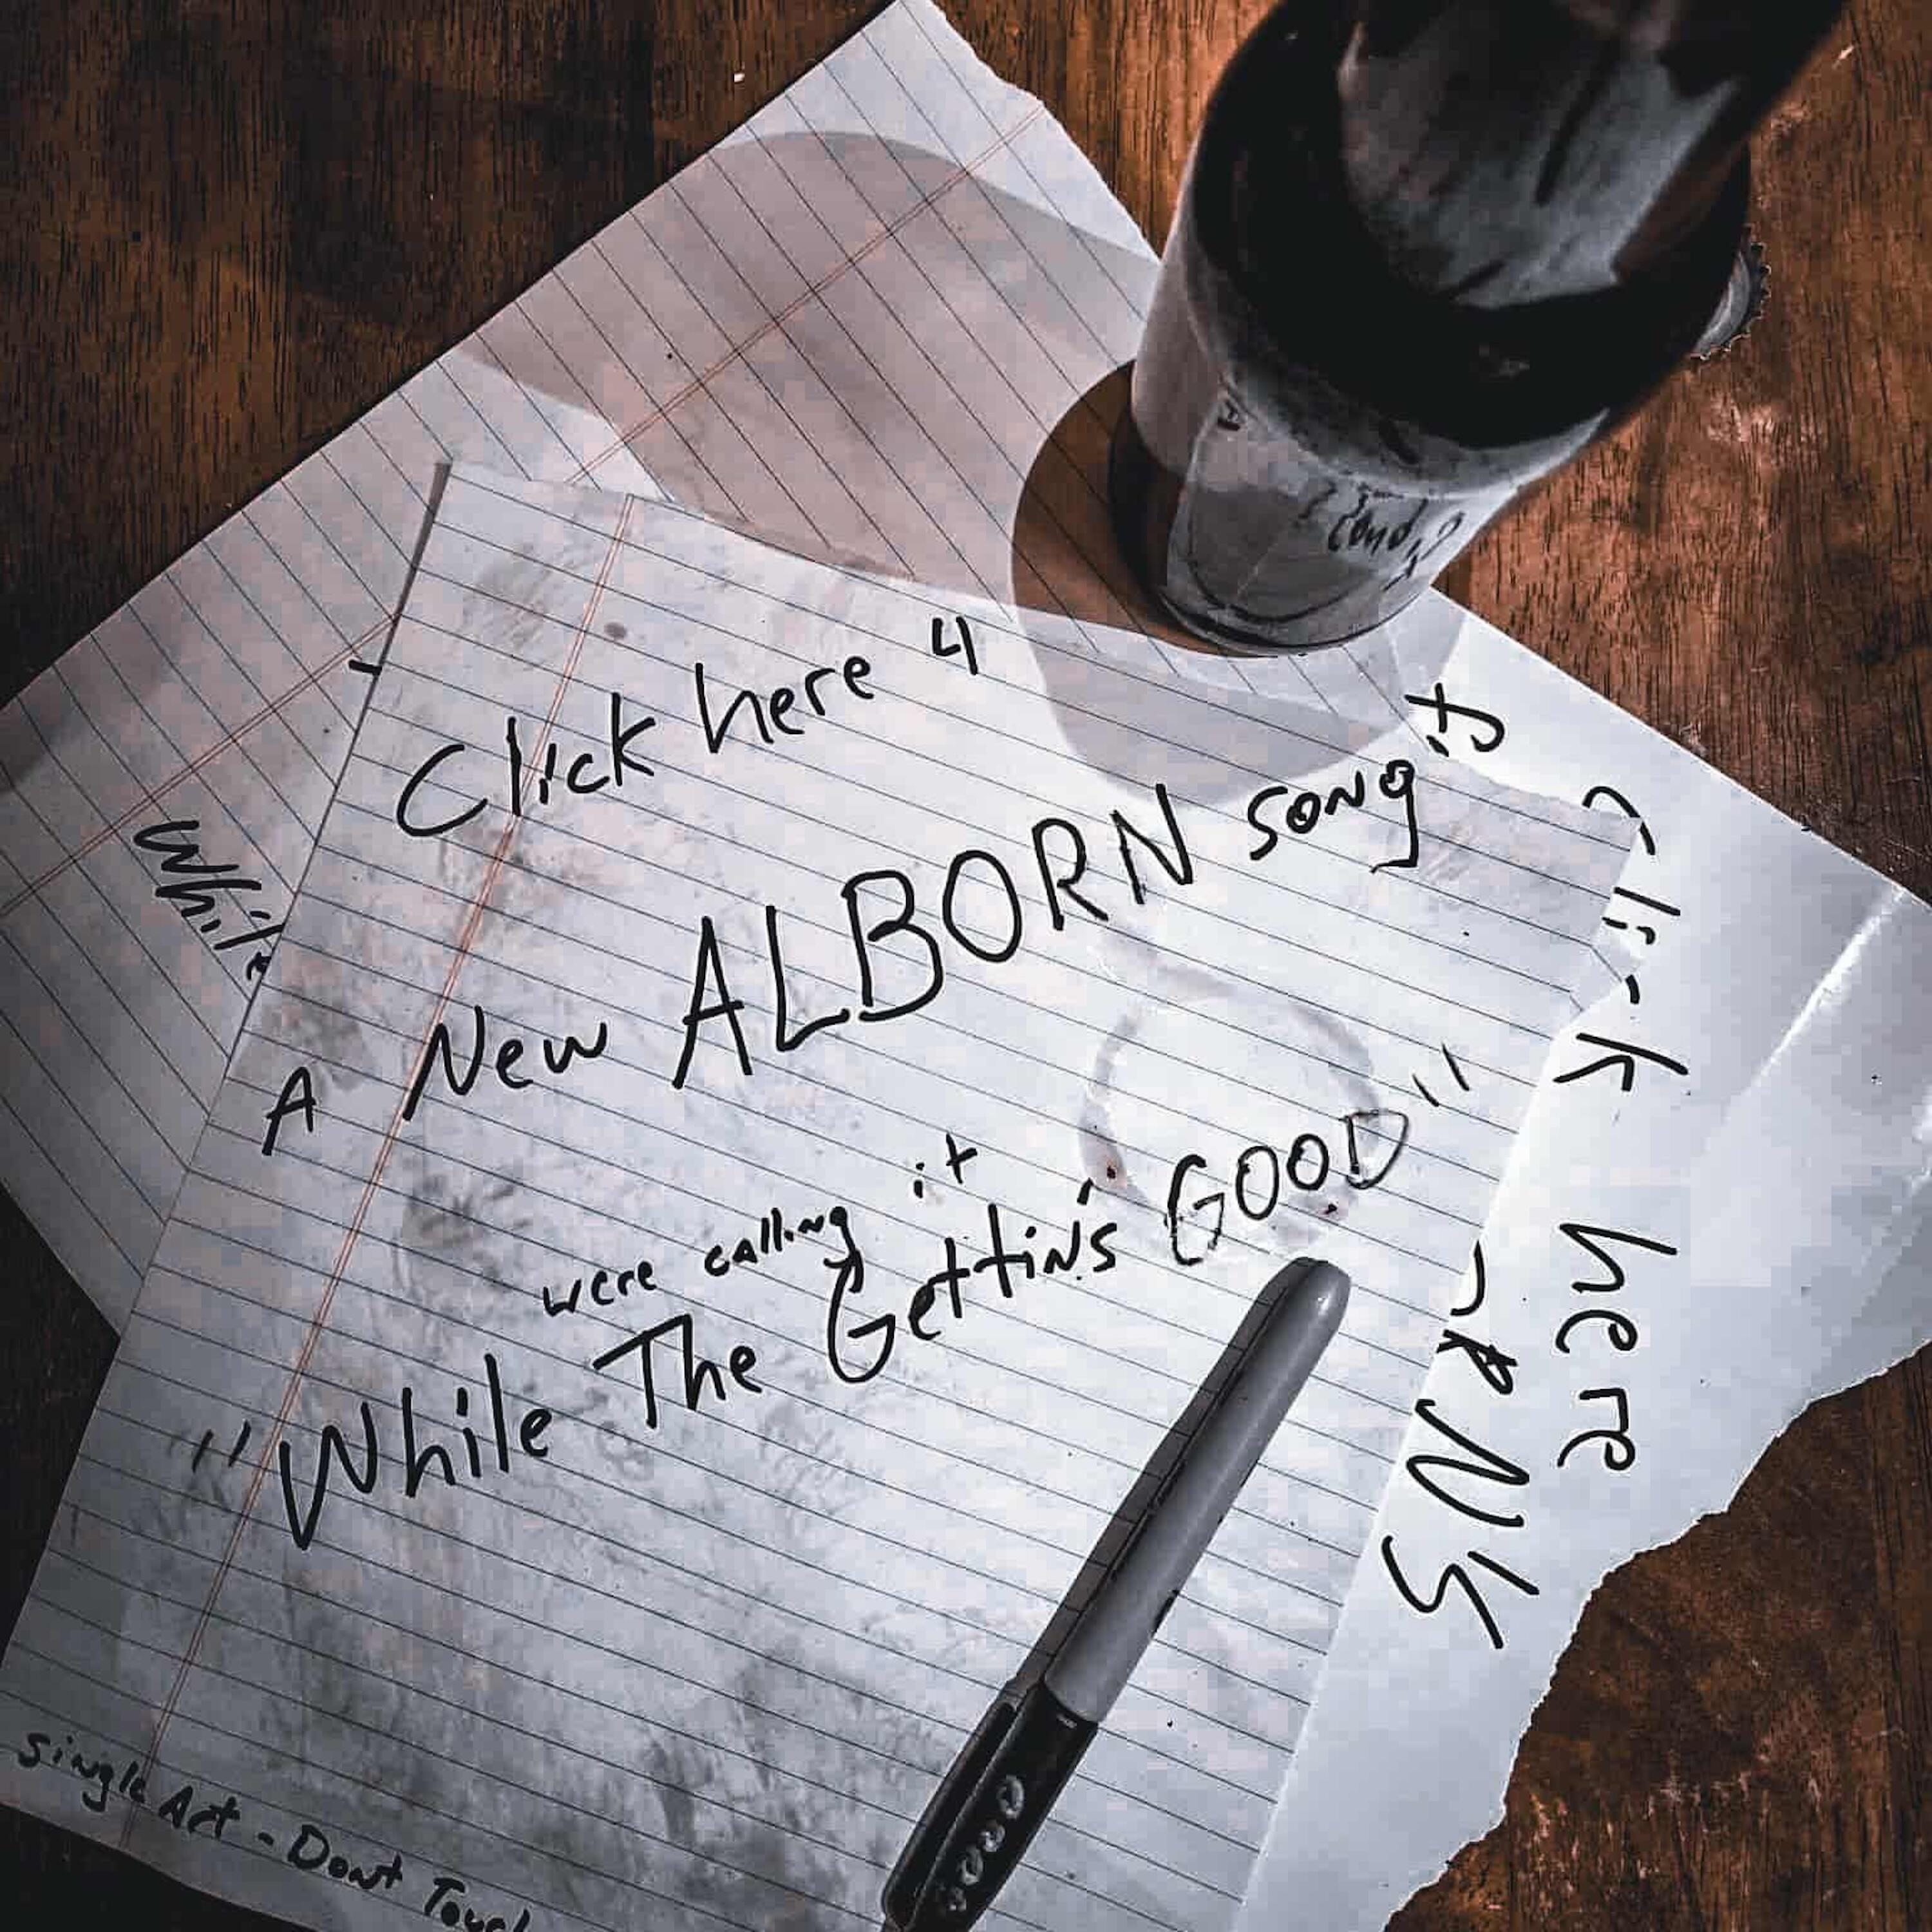 Click here 4
A New ALBORN song
were calling it
"While The Gettin's GOOD"
Click here
single Art - Dont Touch